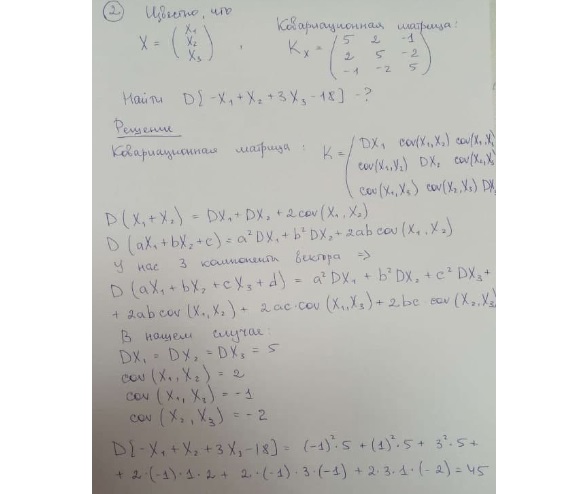 ② Известно, что
X = (X₁ X₂ X₃) , Ковариационная матрица:
Kₓ = (5 2 -1
2 5 -2
-1 -2 5)
Найти D[-X₁+X₂+3X₃-18] -?
Решение
Ковариационная матрица: K = (DX₁ cov(X₁,X₂) cov(X₁,X₃
cov(X₁,X₂) DX₂ cov(X₂,X₃
cov(X₁,X₃) cov(X₂,X₃) DX₃
D(X₁+X₂) = DX₁+DX₂+2cov(X₁,X₂)
D(aX₁+bX₂+c) = a²DX₁+b²DX₂+2ab cov(X₁,X₂)
У нас 3 компонента вектора =>
D(aX₁+bX₂+cX₃+d) = a²DX₁+b²DX₂+c²DX₃+
+2ab cov(X₁,X₂)+2ac·cov(X₁,X₃)+2bc·cov(X₂,X₃)
В нашем случае:
DX₁ = DX₂ = DX₃ = 5
cov(X₁,X₂) = 2
cov(X₁,X₃) = -1
cov(X₂,X₃) = -2
D[-X₁+X₂+3X₃-18] = (-1)²·5+(1)²·5+3²·5+
+2·(-1)·1·2+2·(-1)·3·(-1)+2·3·1·(-2)=45